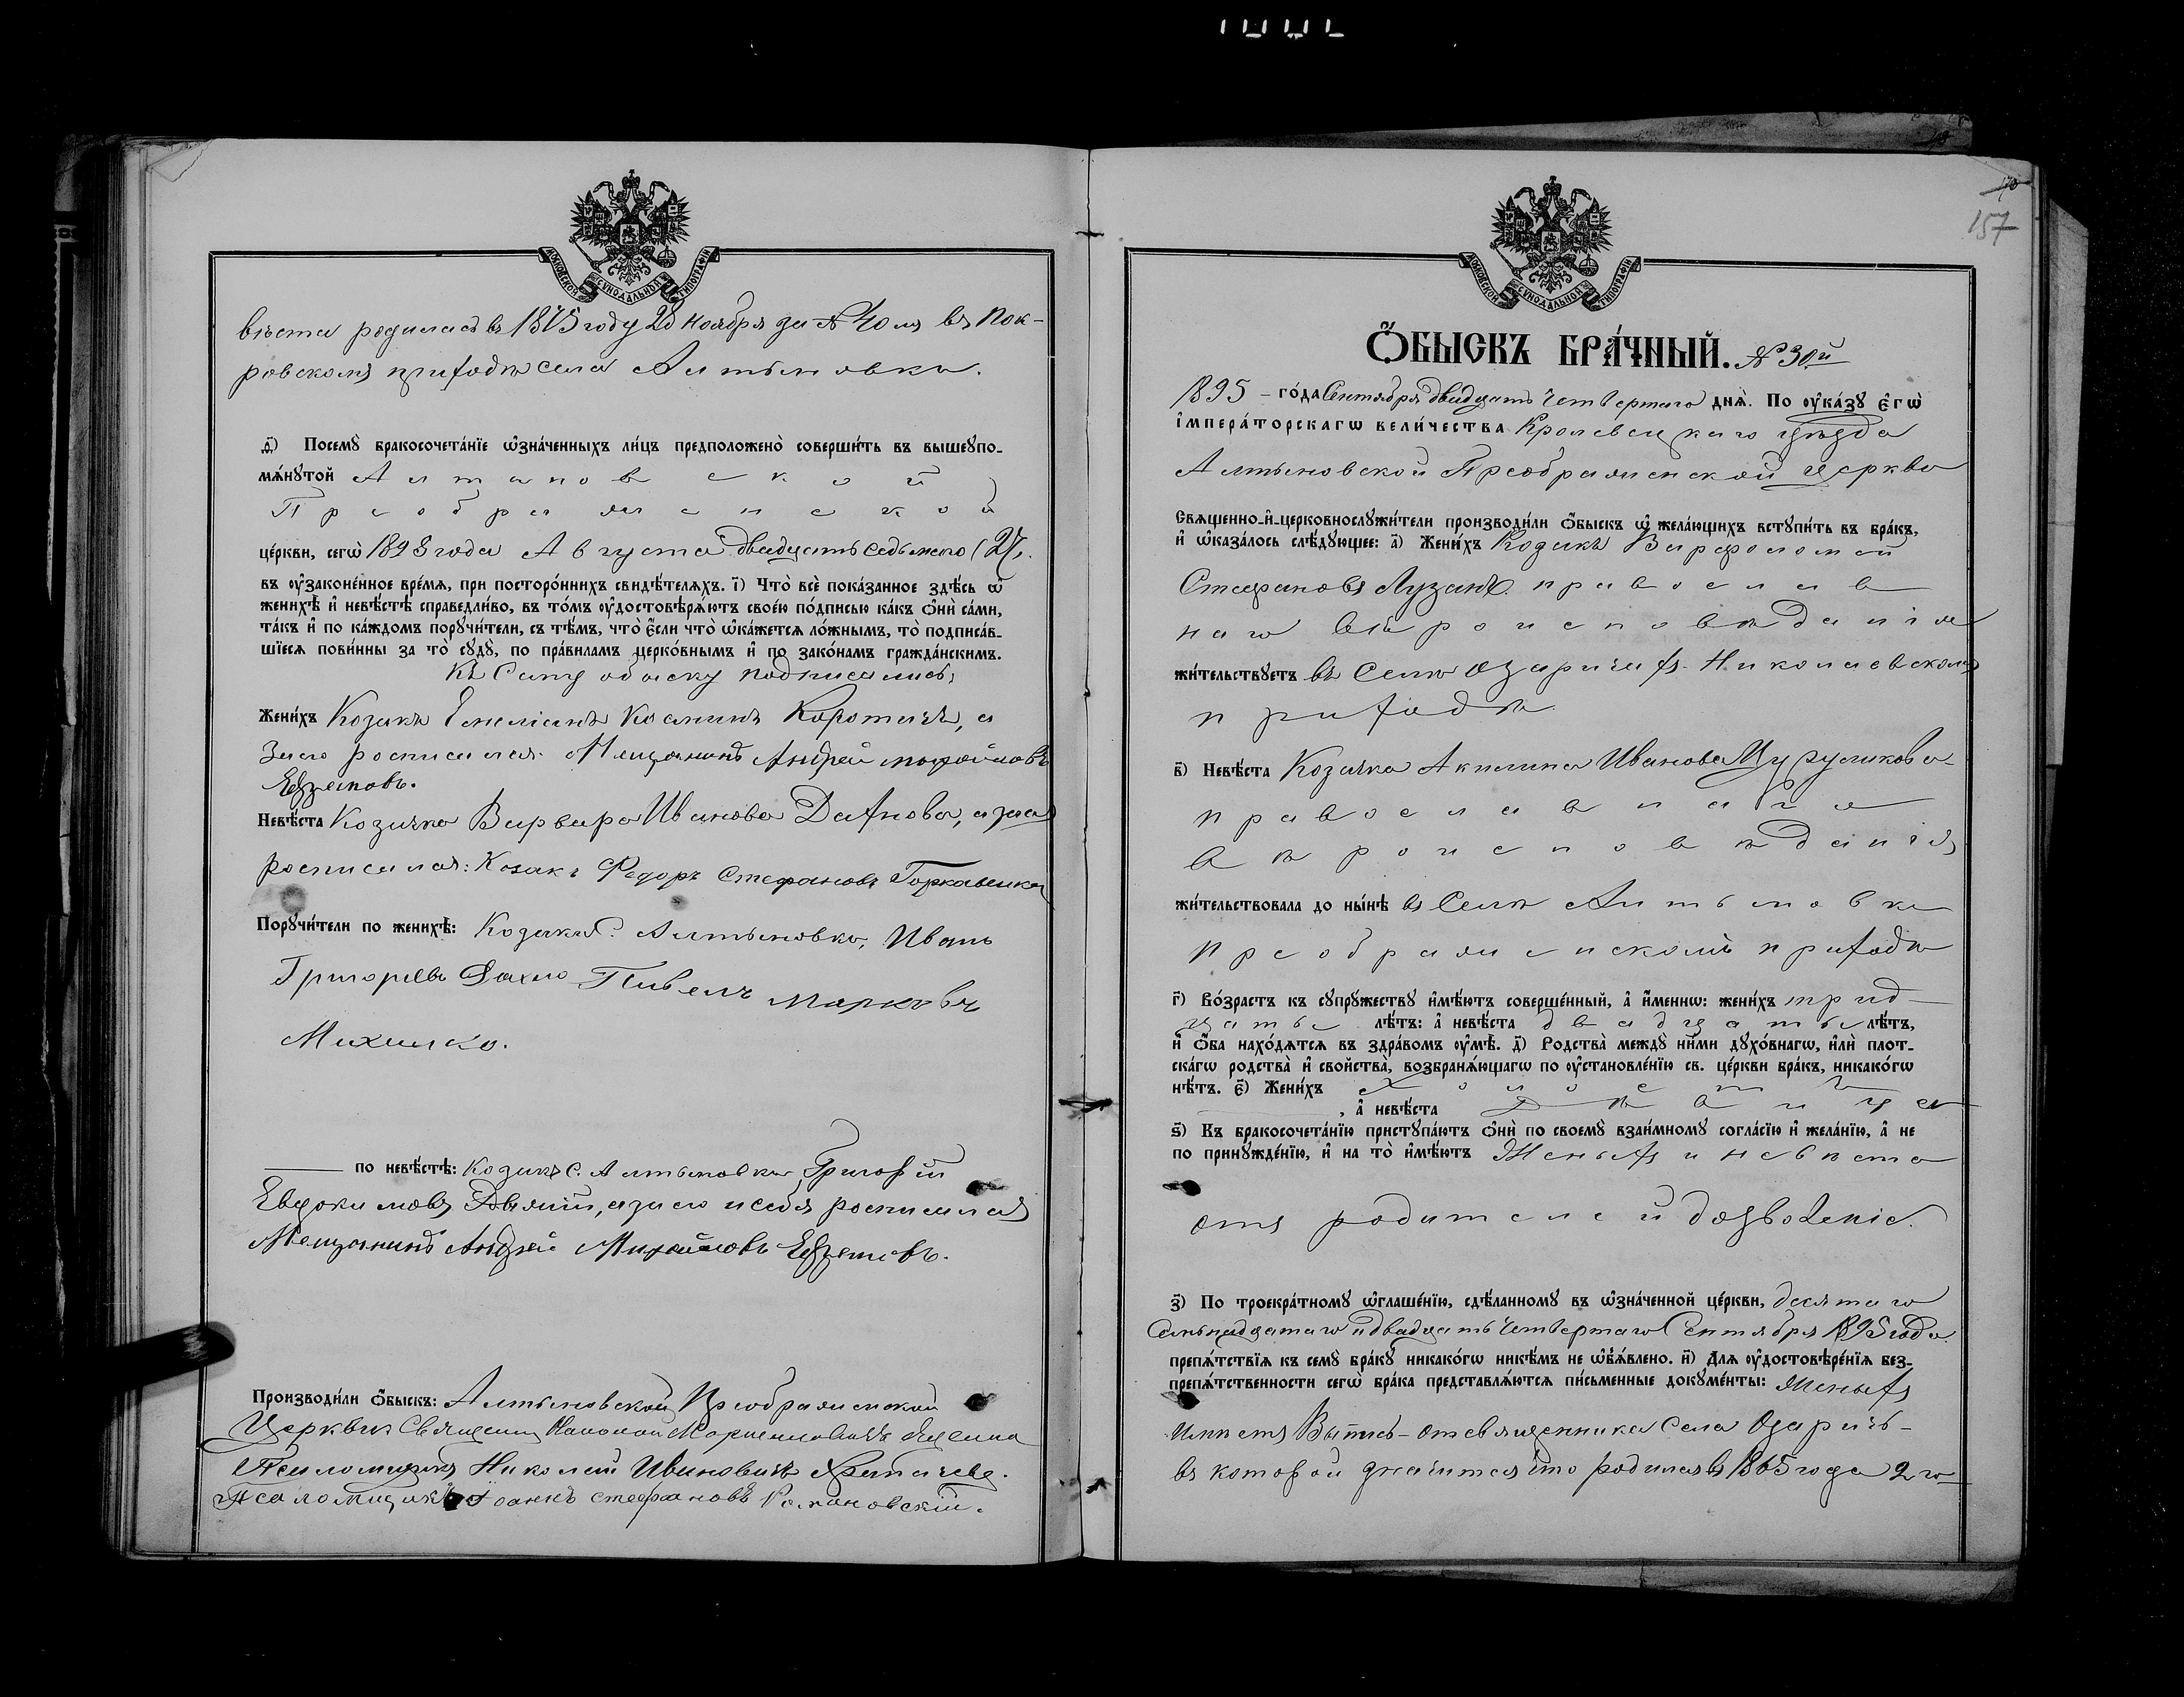 МОСКОВСКОЙ СѴНОДАЛЬНОЙ ТИПОГРАФІИ
вѣста родилась въ 1875 году 28 ноября за № 40 мъ въ Пок-
ровскомъ приходѣ села Алтыновки.
Посемꙋ̀ бракосочета́нїе ѡ҆зна́ченныхъ ли́цъ предположено̀ соверши́ть въ вышеꙋпо-
мѧ́нꙋтой Алтыновской
Преображенской
це́ркви, сегѡ̀ 1895 года Августа двадцать седьмого (27).
въ ᲂу҆законе́нное вре́мѧ, при посторо́ннихъ свидѣ́телѧхъ. і҃) Что̀ всѐ пока́занное здѣ́сь ѡ҆
женихѣ̀ и҆ невѣ́стѣ справедли́во, въ то́мъ ᲂу҆достовѣрѧ́ютъ свое́ю по́дписью ка́къ ѻ҆нѝ са́ми,
та́къ и҆ по ка́ждомъ порꙋчи́тели, съ тѣ́мъ, что̀ є҆́сли что̀ ѡ҆ка́жетсѧ ло́жнымъ, то̀ подписа́в-
шїесѧ пови́нны за то̀ сꙋдꙋ̀, по пра́виламъ церко́внымъ и҆ по зако́намъ гражда́нскимъ.
Къ Сему обыску подписались,
Жени́хъ Козакъ Емеліанъ Косминъ Коротичъ, а
за него росписался: Мещанинъ Андрей Михайловъ
Ефремовъ.
Невѣ́ста Козачка Варвара Иванова Дахнова, а за нее
росписался: Козакъ Федоръ Стефановъ Горкавенко
Порꙋчи́тели по женихѣ̀: Козаки С. Алтыновки, Иванъ
Григорьевъ Дахно Павелъ Марковъ
Михилко.
по невѣ́стѣ: Козакъ С. Алтыновки, Григорій
Евдокимовъ, а за его и себя росписался
Мещанинъ Андрей Михайловъ Ефремовъ.
Производи́ли ѻ҆́быскъ: Алтыновской Преображенской
Церкви Священникъ
Псаломщикъ Николай Ивановичъ
Псаломщикъ Іоаннъ Стефановъ Романовскій.
157
МОСКОВСКОЙ СѴНОДАЛЬНОЙ ТИПОГРАФІИ
Ѻ҆́БЫСКЪ БРА́ЧНЫЙ. № 30й
1895 го́да Сентября двадцать четвертаго днѧ̀. По ᲂу҆ка́зꙋ є҆гѡ̀
і҆мпера́торскагѡ вели́чества Кролевецкаго уѣзда
Алтыновской Преображенской церкви
Свѧщенно-и҆-церковнослꙋжи́тели производи́ли ѻ҆́быскъ ѡ҆ жела́ющихъ встꙋпи́ть въ бра́къ,
и҆ ѡ҆каза́лось слѣ́дꙋющее: а҃) Жени́хъ Козакъ Варфоломей
Стефановъ Лузанъ православ
наго вѣроисповѣданія
жи́тельствꙋетъ въ Селѣ Озаричахъ Николаевскомъ
приходѣ
в҃) Невѣ́ста Козачка Акилина Иванова Цуруликова
православнаго
вѣроисповѣданія,
жи́тельствовала до ны́нѣ въ Селѣ Алтыновки
Преображенскомъ приходѣ
г҃) Во́зрастъ къ сꙋпрꙋ́жествꙋ и҆мѣ́ютъ соверше́нный, а҆ и҆́меннѡ: жени́хъ трид-
цать лѣ́тъ: а҆ невѣ́ста двадцать лѣ́тъ,
и҆ ѻ҆́ба нахо́дѧтсѧ въ здра́вомъ ᲂу҆мѣ̀. д҃) Родства̀ междꙋ̀ ни́ми дꙋхо́внагѡ, и҆лѝ плот-
ска́гѡ родства̀ и҆ сво́йства̀, возбранѧ́ющагѡ по ᲂу҆становле́нїю св. це́ркви бра́къ, никако́гѡ
нѣ́тъ. є҃) Жени́хъ холостъ
, а҆ невѣ́ста дѣвица
ѕ҃) Къ бракосочета́нїю пристꙋпа́ютъ ѻ҆нѝ по своемꙋ̀ взаи́мномꙋ согла́сїю и҆ жела́нїю, а҆ не
по принꙋжде́нїю, и҆ на то̀ и҆мѣ́ютъ Женихъ и невѣста
отъ родителей дозволеніе.
з҃) По троекра́тномꙋ ѡ҆глаше́нїю, сдѣ́ланномꙋ въ ѡ҆зна́ченной це́ркви, десятаго
Семьнадцатаго и двадцать четвертаго Сентября 1895 года
препѧ́тствїѧ къ семꙋ̀ бра́кꙋ никако́гѡ никѣ́мъ не ѡ҆б̾ѧ́влено. и҃) Для ᲂу҆достовѣре́нїѧ без-
препѧ́тственности сегѡ̀ бра́ка представлѧ́ютсѧ пи́сьменные докꙋме́нты: Женихъ
имѣетъ Выпись отъ священника Села Озаричъ-
въ которой значится что родился въ 1865 года 2 го